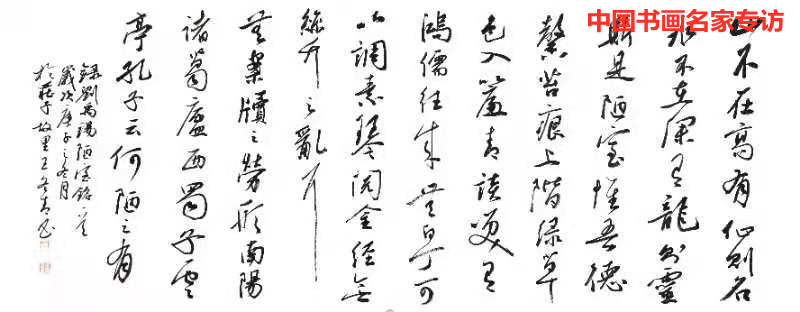 中国书画名家专访
山不在高有仙则名
水不在深有龍则靈
斯是陋室惟吾德
馨苔痕上階绿草
色入簾青談笑有
鴻儒往来無白丁可
以調素琴阅金经無
絲竹之亂耳
無案牘之勞形南陽
諸葛廬西蜀子雲
亭孔子云何陋之有
録劉禹錫陋室銘一首
歲次庚子之冬月
於莊子故里王